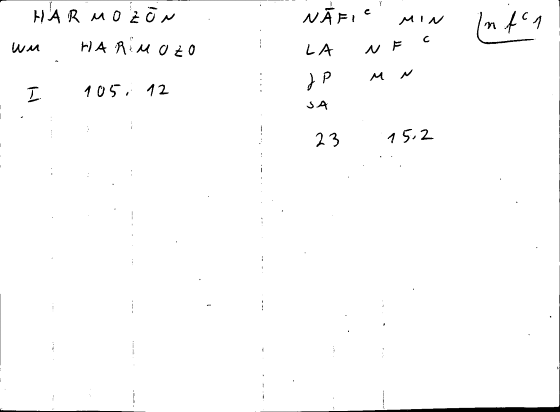 HARMOZŌN
WM HARMOZO
I 105. 12
NĀFIᶜ MIN
LA NFᶜ
JP MN
SA
23 15.2
nfᶜ1